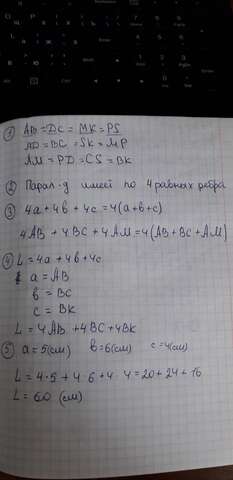 ① AB = DC = MK = PS
AD = BC = SK = MP
AM = PD = CS = BK
② Парал-д имеет по 4 равных ребра
③ 4a + 4b + 4c = 4(a+b+c)
4AB + 4BC + 4AM = 4(AB+BC+AM)
④ L = 4a + 4b + 4c
a = AB
b = BC
c = BK
L = 4AB + 4BC + 4BK
⑤ a = 5(см) b = 6(см) c = 4(см)
L = 4·5 + 4·6 + 4·4 = 20 + 24 + 16
L = 60 (см)